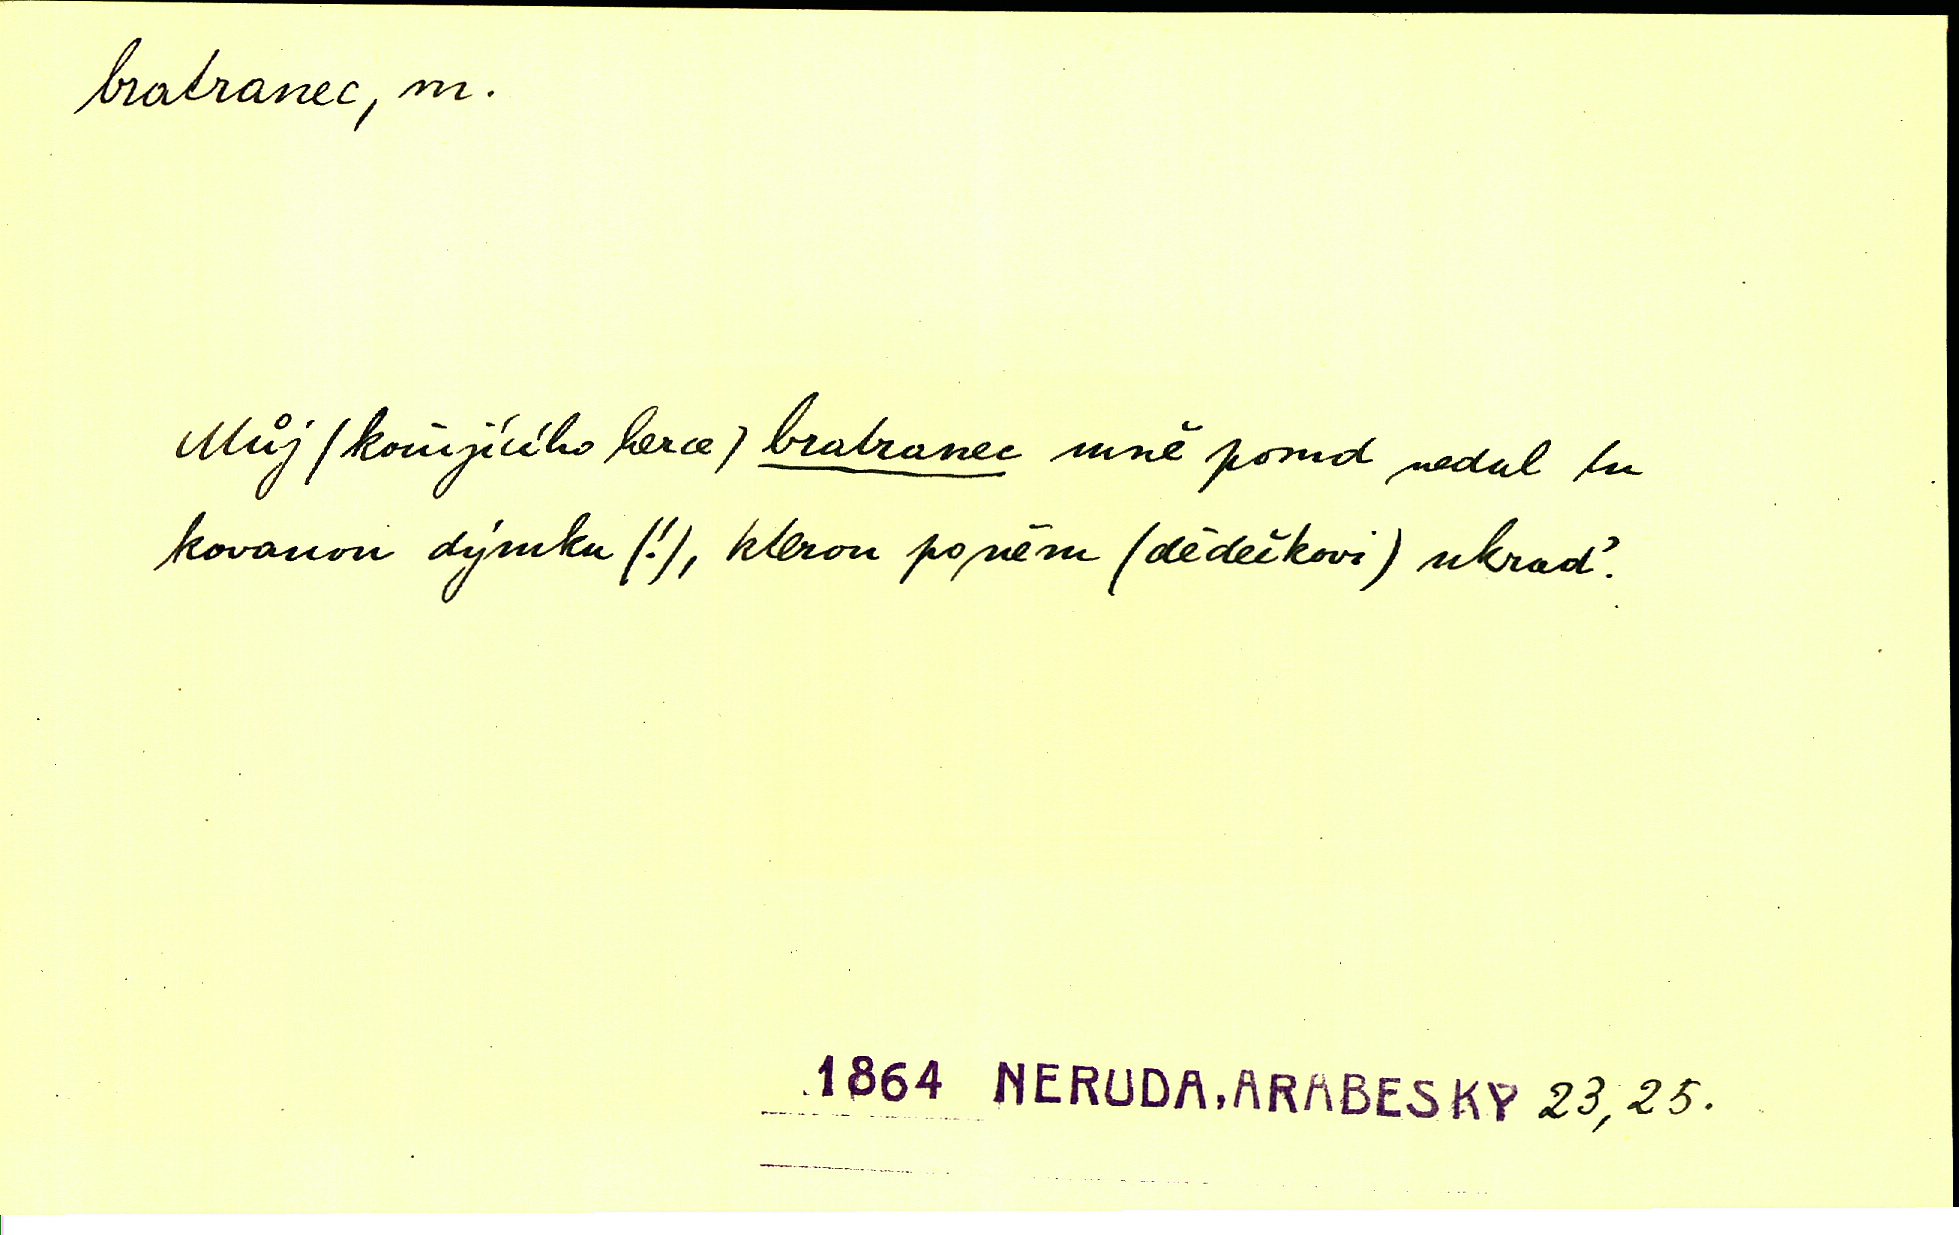 bratranec, m.
Můj (kočujícího herce) bratranec mně posud nedal tu
kovanou dýmku (!), kterou po něm (dědečkovi) ukrad'.
1864 NERUDA, ARABESKY 23, 25.